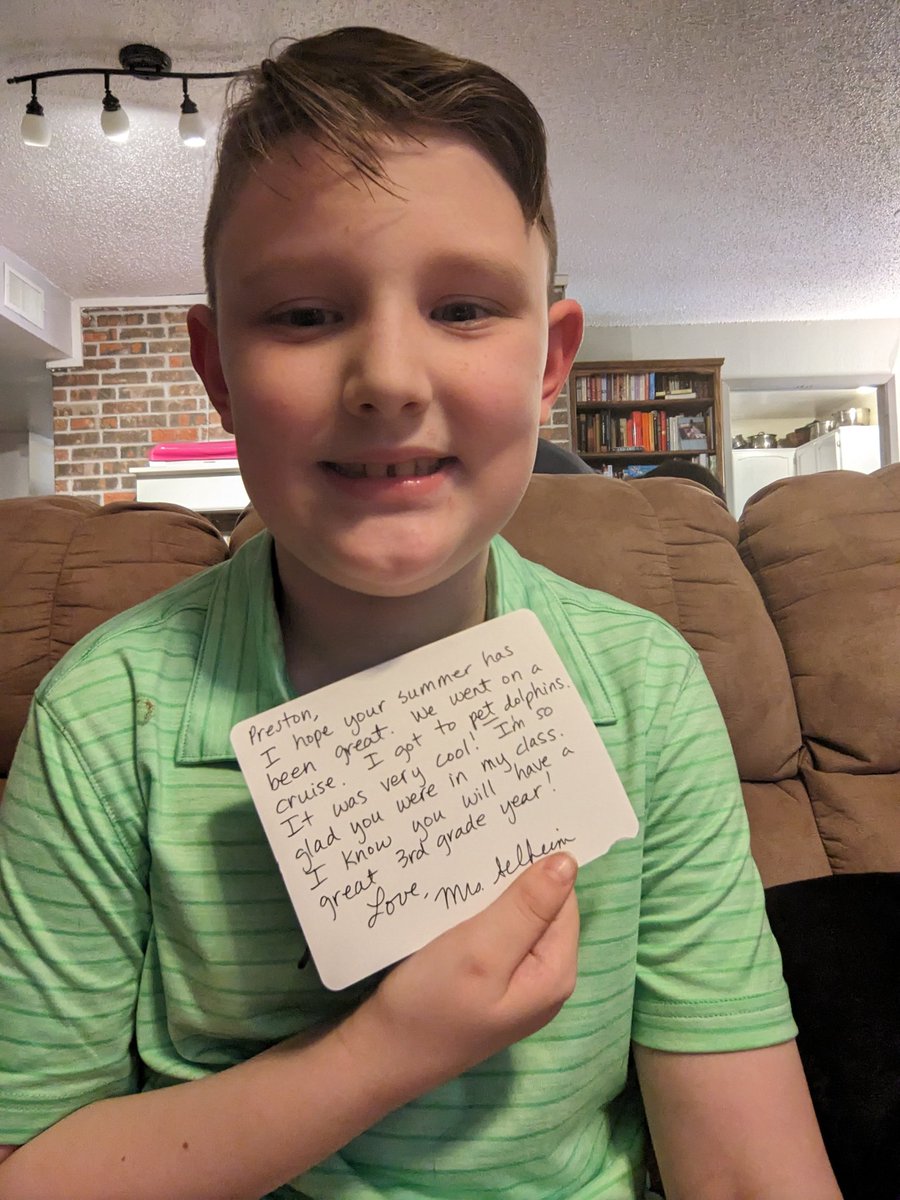 Preston,
I hope your summer has
been great. We went on a
cruise. I got to pet dolphins.
It was very cool! I'm so
glad you were in my class.
I know you will have a
great 3rd grade year!
Love, Mrs. Aelheim